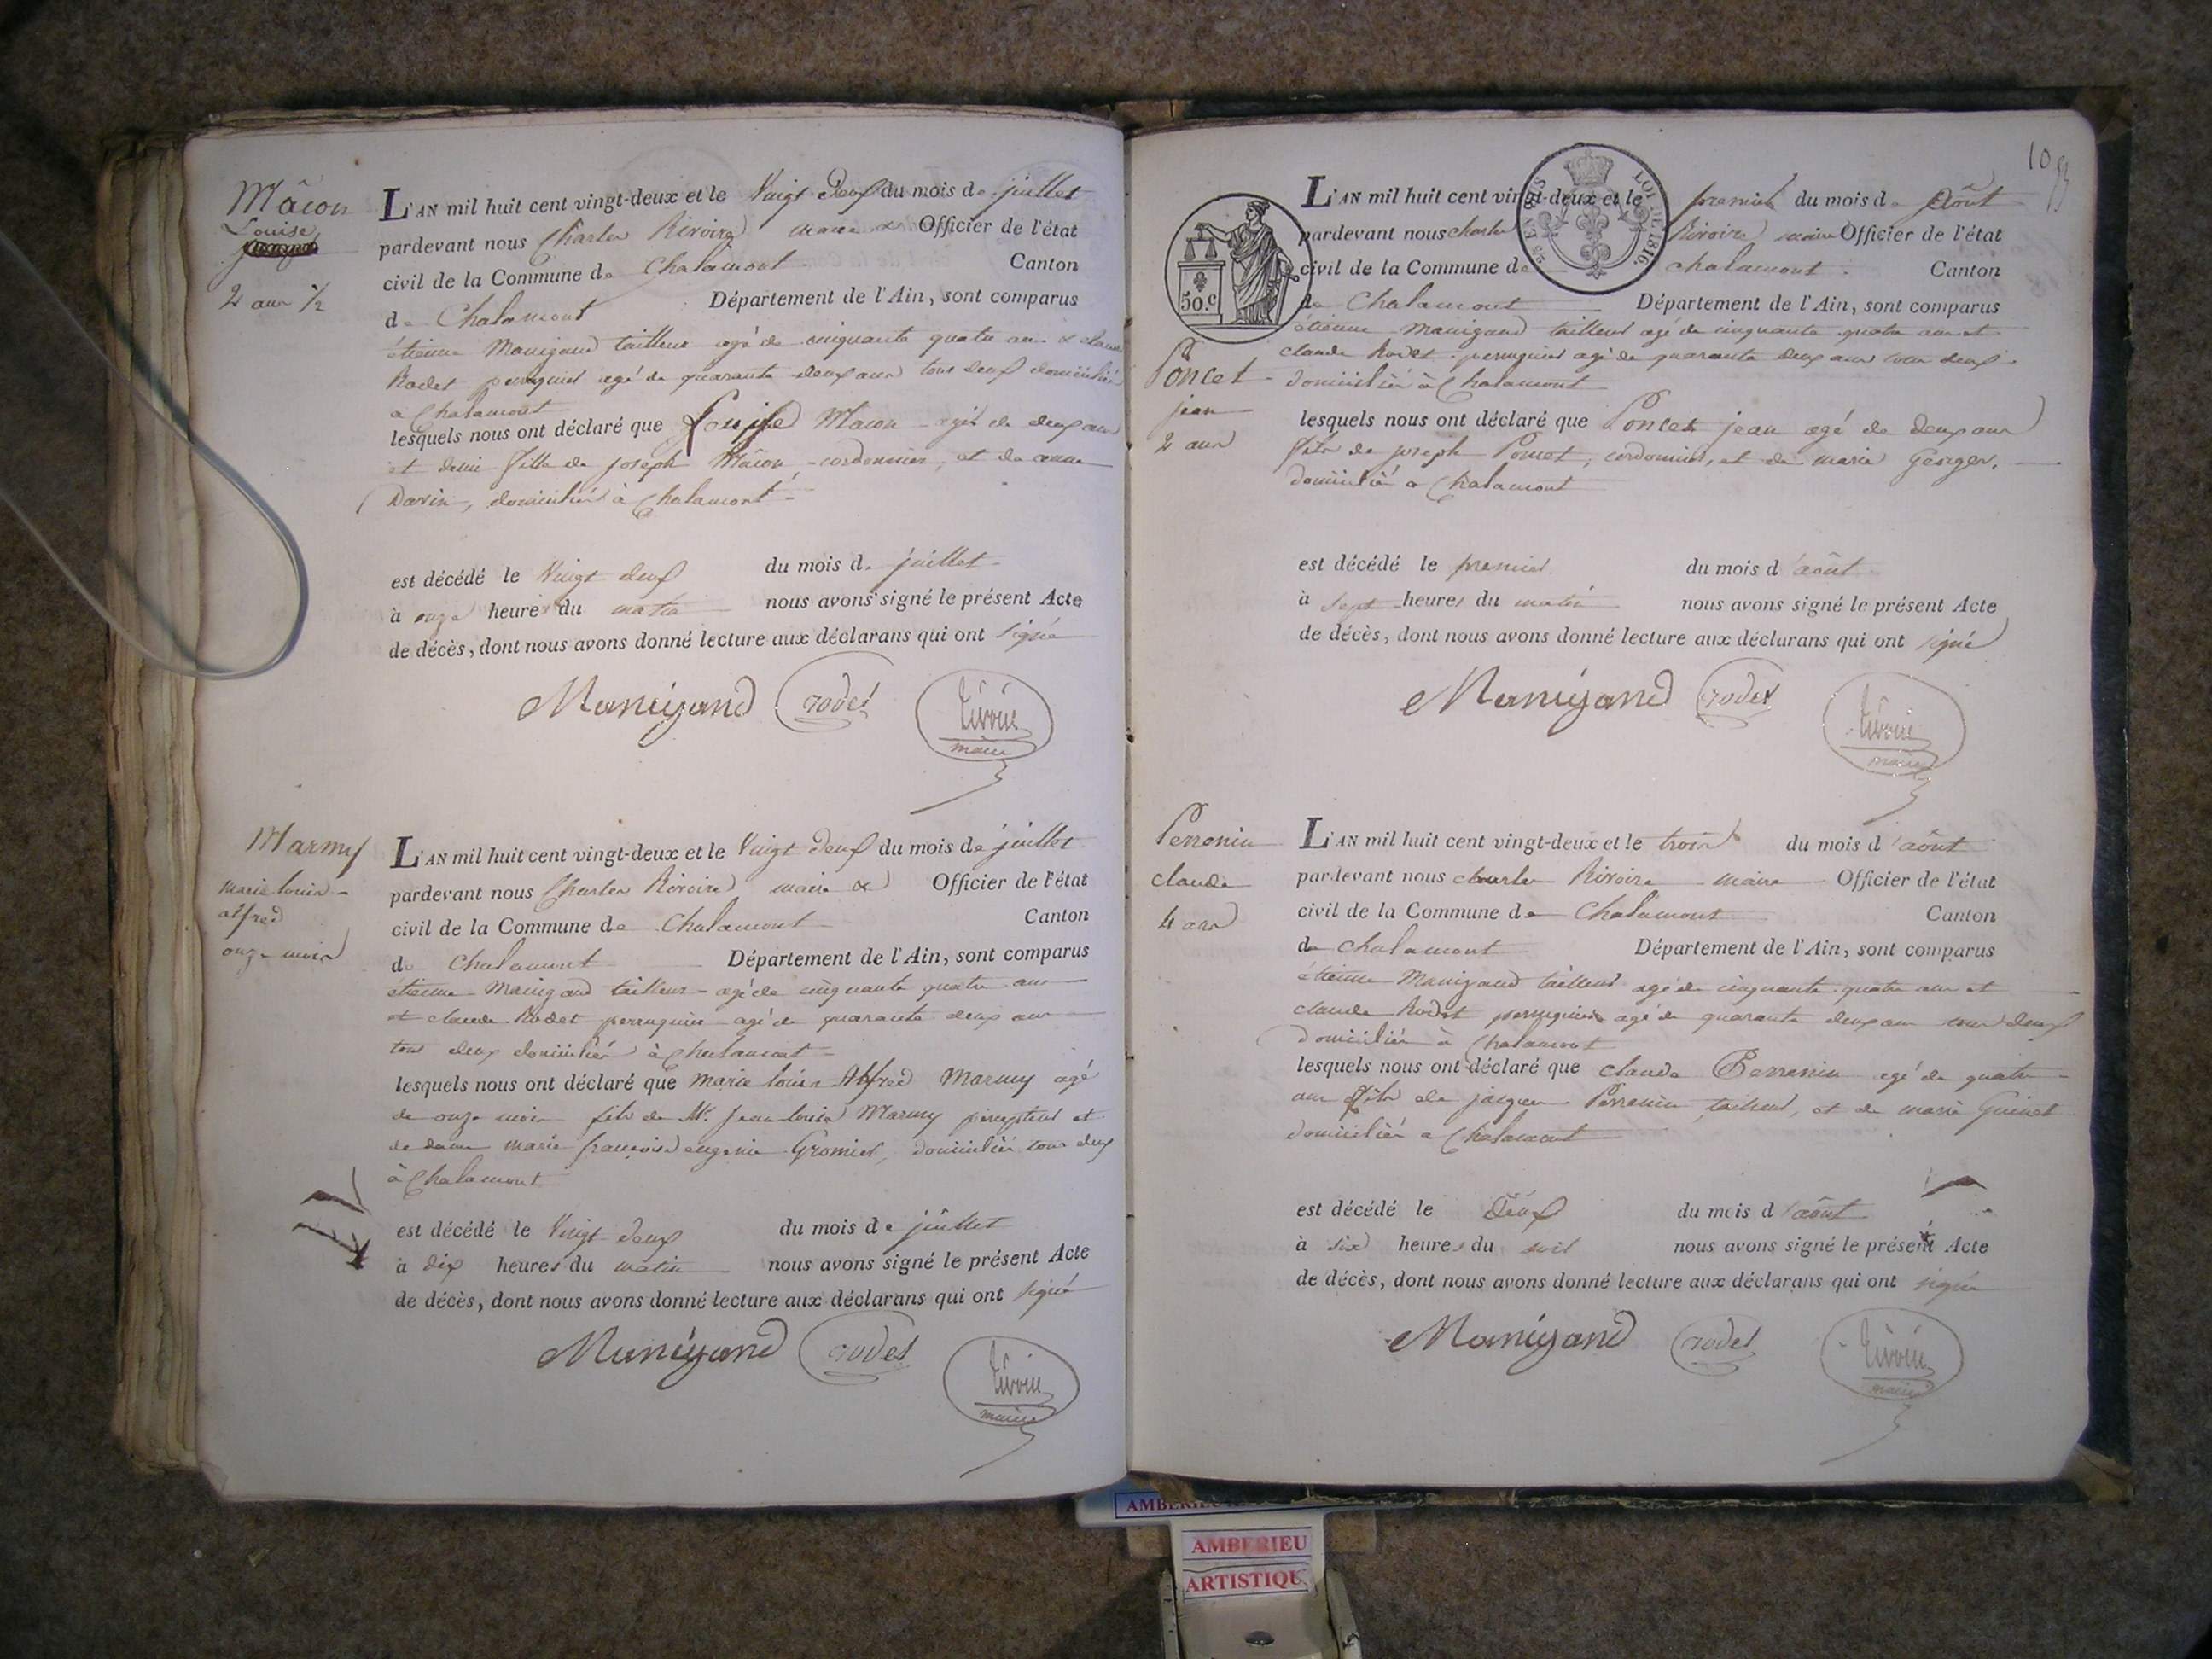 Mâcon
Louise
2 ans ½
L'AN mil huit cent vingt-deux et le Vingt Deux du mois de juillet
pardevant nous Charles Rivoire maire & Officier de l'état
civil de la Commune de Chalamont Canton
de Chalamont Département de l'Ain, sont comparus
étienne Manigand tailleur agé de cinquante quatre ans & claude
Rodet perruquier agé de quarante deux ans tous deux domiciliés
a Chalamont
lesquels nous ont déclaré que Louise Macon agée de deux ans
et demi fille de joseph Mâcon cordonnier, et de anne
Darin, domicilié à Chalamont
est décédé le Vingt deux du mois de juillet
à onze heures du matin nous avons signé le présent Acte
de décès, dont nous avons donné lecture aux déclarans qui ont signé
Manigand rodet Rivoire
maire
Marmy
marie louis
alfred
onze mois
L'AN mil huit cent vingt-deux et le Vingt Deux du mois de juillet
pardevant nous Charles Rivoire maire & Officier de l'état
civil de la Commune de Chalamont Canton
de Chalamont Département de l'Ain, sont comparus
étienne Manigand tailleur agé de cinquante quatre ans
et claude Rodet perruquier agé de quarante deux ans
tous deux domiciliés à Chalamont
lesquels nous ont déclaré que marie louis Alfred Marmy agé
de onze mois fils de Mr. Jean louis Marmy percepteur et
de dame marie françoise eugenie Gromier, domiciliés tous deux
à Chalamont
est décédé le Vingt deux du mois de juillet
à dix heures du matin nous avons signé le présent Acte
de décès, dont nous avons donné lecture aux déclarans qui ont signé
Manigand rodet Rivoire
maire
50.c
25 EN SUS LOI DE 1816.
Poncet
jean
2 ans
L'AN mil huit cent vingt-deux et le premier du mois d août
pardevant nous charles Rivoire maire Officier de l'état
civil de la Commune de chalamont Canton
de Chalamont Département de l'Ain, sont comparus
étienne Manigand tailleur agé de cinquante quatre ans et
claude Rodet perruquier agé de quarante deux ans tous deux
domiciliés à Chalamont
lesquels nous ont déclaré que Poncet jean agé de deux ans
fils de joseph Poncet, cordonnier, et de marie Georger,
domicilié a Chalamont
est décédé le premier du mois d'août
à sept heures du matin nous avons signé le présent Acte
de décès, dont nous avons donné lecture aux déclarans qui ont signé
Manigand rodet Rivoire
maire
Perronin
claude
4 ans
L'AN mil huit cent vingt-deux et le trois du mois d'août
pardevant nous charles Rivoire maire Officier de l'état
civil de la Commune de Chalamont Canton
de chalamont Département de l'Ain, sont comparus
étienne Manigand tailleur agé de cinquante quatre ans et
claude Rodet perruquier agé de quarante deux ans tous deux
domiciliés à Chalamont
lesquels nous ont déclaré que claude Perronin agé de quatre
ans fils de jacques Perronin tailleur, et de marie Guinet
domiciliés a Chalamont
est décédé le deux du mois d'août
à six heures du soir nous avons signé le présent Acte
de décès, dont nous avons donné lecture aux déclarans qui ont signé
Manigand rodet Rivoire
maire
AMBERIEU
ARTISTIQU